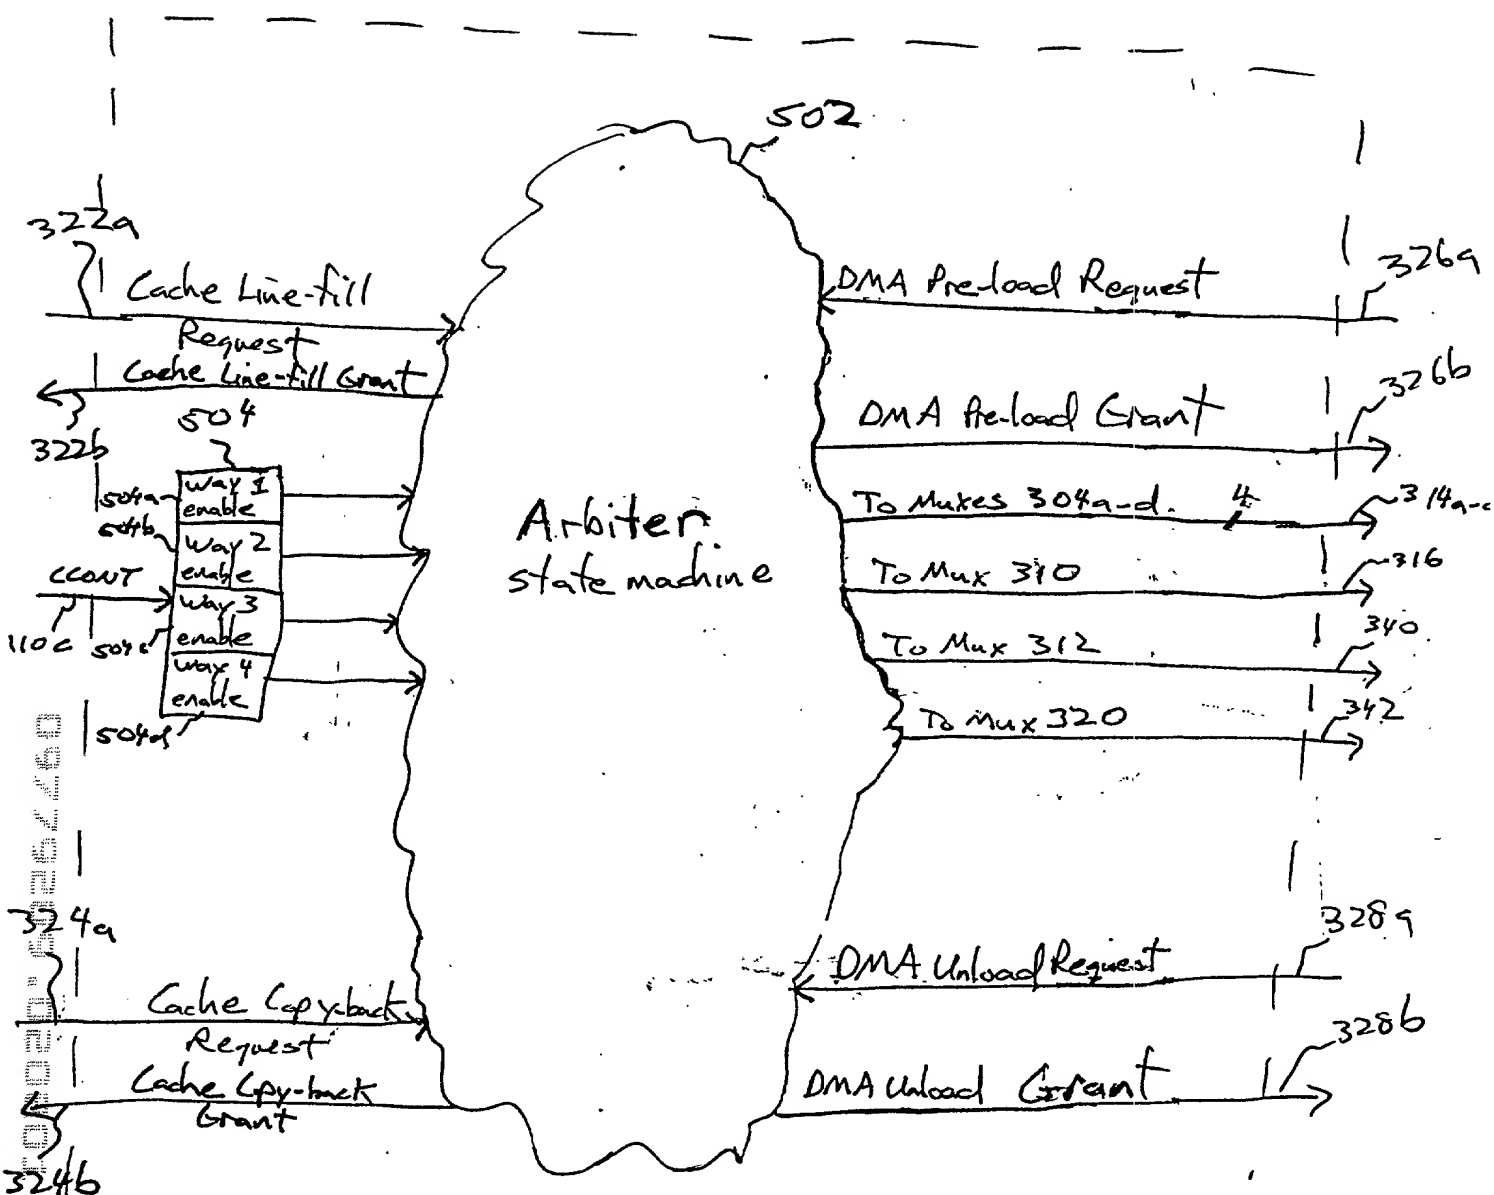 502
322a
Cache Line-fill
Request
Cache Line-fill Grant
322b
504
504a
Way 1
enable
504b
Way 2
enable
CCONT
110c
Way 3
enable
504c
Way 4
enable
504d
Arbiter
state machine
DMA Pre-load Request
326a
DMA Pre-load Grant
326b
To Muxes 304a-d.
4
To Mux 310
316
To Mux 312
340
To Mux 320
342
324a
Cache Copy-back
Request
Cache Copy-back
Grant
324b
DMA Unload Request
328a
DMA Unload Grant
328b